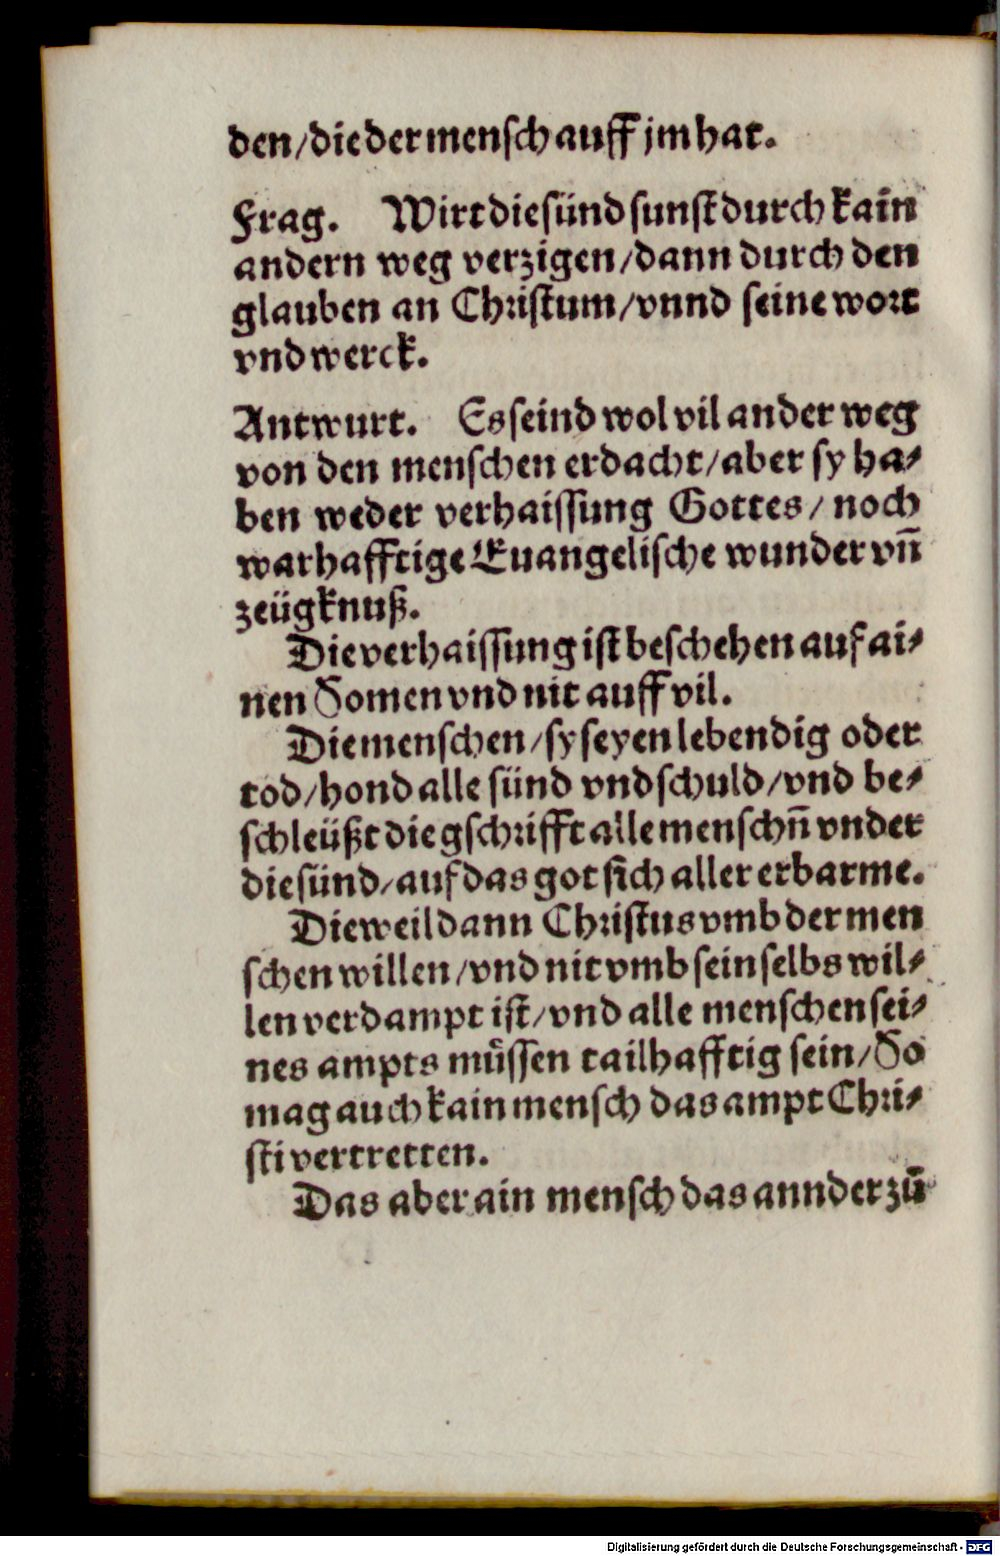 den/die der mensch auff jm hat.
Frag. Wirt die sünd sunst durch kain
andern weg verzigen/dann durch den
glauben an Christum/vnnd seine wort
vnd werck.
Antwurt. Es seind wol vil ander weg
von den menschen erdacht/aber sy ha⸗
ben weder verhaissung Gottes/noch
warhafftige Euangelische wunder vn̄
zeügknuß.
Die verhaissung ist beschehen auf ai⸗
nen Somen vnd nit auff vil.
Die menschen/sy seyen lebendig oder
tod/hond alle sünd vnd schuld/vnd be⸗
schleüßt die gschrifft alle menschn̄ vnder
die sünd/auf das got sich aller erbarme.
Dieweil dann Christus vmb der men
schen willen/vnd nit vmb sein selbs wil⸗
len verdampt ist/vnd alle menschen sei⸗
nes ampts muͤssen tailhafftig sein/So
mag auch kain mensch das ampt Chri⸗
sti vertretten.
Das aber ain mensch das annder zuͦ
Digitalisierung gefördert durch die Deutsche Forschungsgemeinschaft - DFG